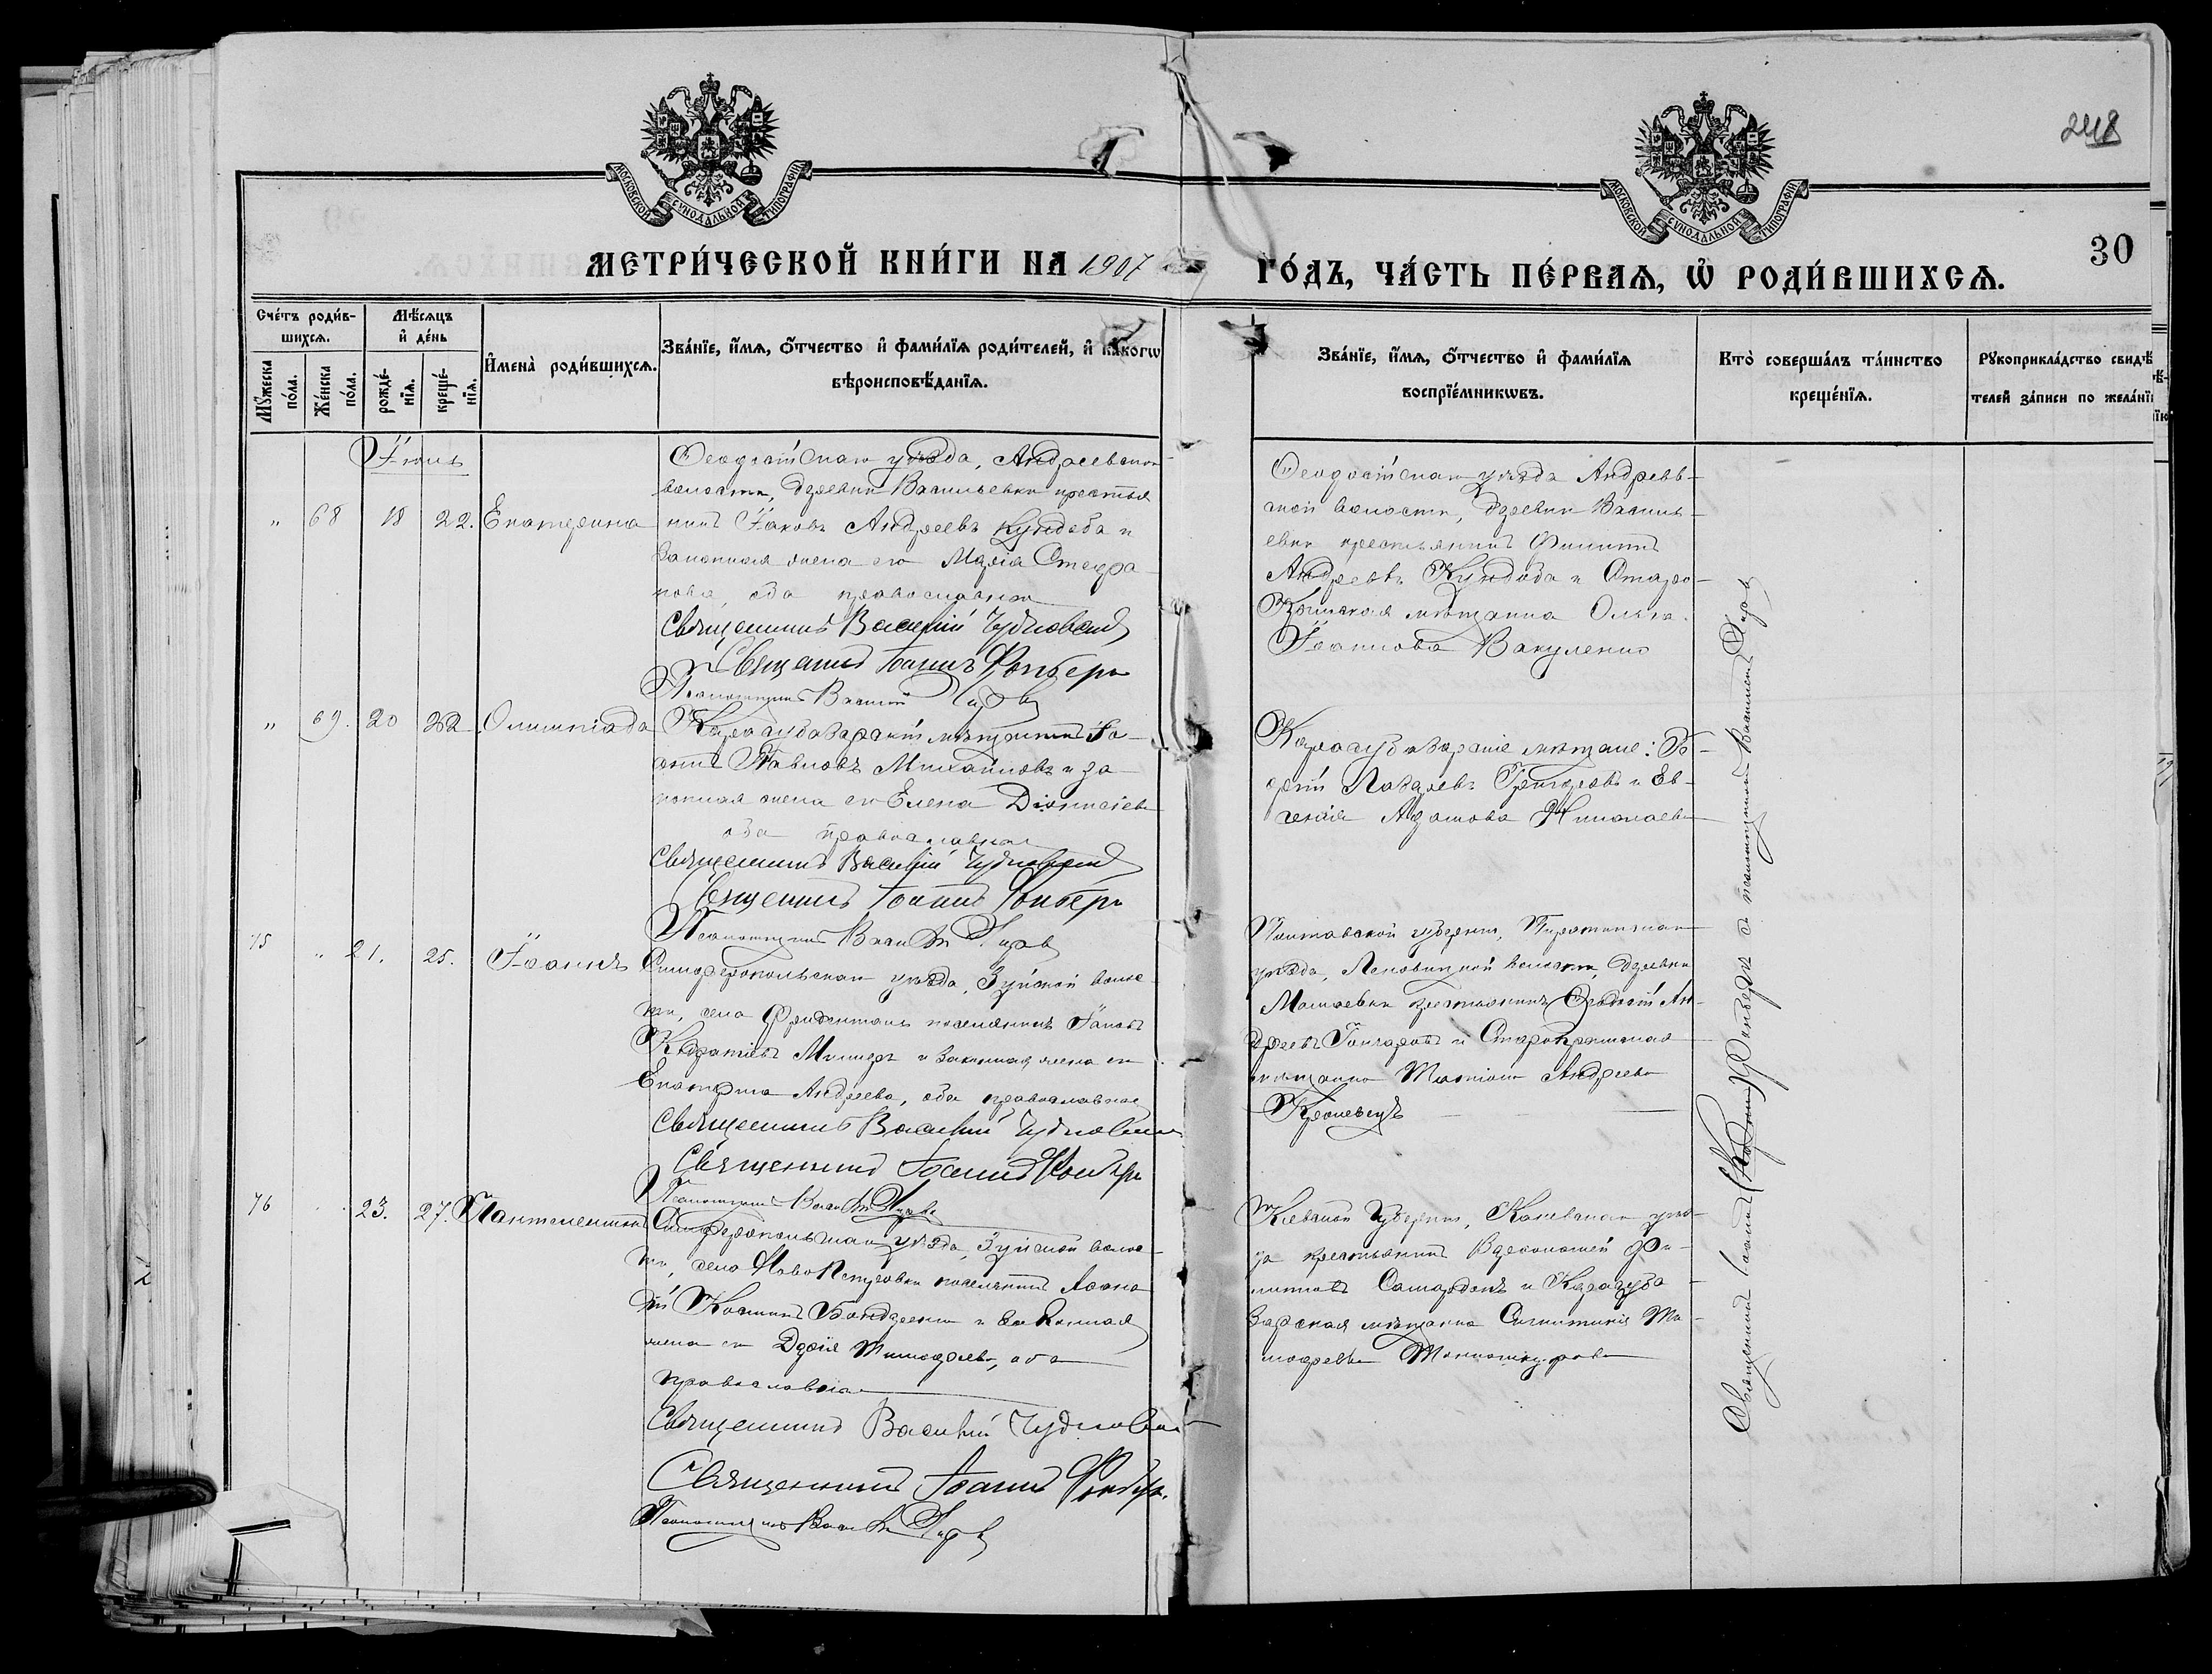 248
МОСКОВСКОЙ СѴНОДАЛЬНОЙ ТИПОГРАФІИ
МОСКОВСКОЙ СѴНОДАЛЬНОЙ ТИПОГРАФІИ
30
МЕТРИ́ЧЕСКОЙ КНИ́ГИ НА 1907
ГО́ДЪ, ЧА́СТЬ ПЕ́РВАѦ, Ѡ҆ РОДИ́ВШИХСѦ.
Сче́тъ роди́в-
шихсѧ.
Мꙋ́жеска по́ла.
Же́нска по́ла.
Мѣ́сѧцъ
и҆ де́нь
рожде́-
нїѧ.
креще́-
нїѧ.
И҆мена̀ роди́вшихсѧ.
Зва́нїе, и҆́мѧ, ѻ҆́тчество и҆ фами́лїѧ роди́телей, и҆ како́гѡ
вѣроисповѣ́данїѧ.
Зва́нїе, и҆́мѧ, ѻ҆́тчество и҆ фами́лїѧ
воспрїе́мникѡвъ.
Кто̀ соверша́лъ та́инство
креще́нїѧ.
Рꙋкоприкла́дство свидѣ́-
телей за́писи по жела́нїю
Іюнь
" 68 18 22. Екатерина
Ѳеодосійскаго уѣзда, Андреевской
волости, деревни Васильевки крестья
нинъ Іаковъ Андреевъ Кундоба и
законная жена его Марія Стефа
нова, оба православные
Священникъ Василій Чудновскій
Священникъ Іоаннъ Фонберъ
Псаломщикъ Василій
Ѳеодосійскаго уѣзда Андреев-
ской волости, деревни Василь-
евки крестьянинъ Филиппъ
Андреевъ Кундоба и Старо-
Крымская мѣщанка Ольга
Іоаннова Вакуленко
" 69. 20 22 Олимпіада
Карасубазарскій мѣщанинъ Іо-
аннъ Павловъ Михайловъ и за-
конная жена его Елена Діонисіева
оба православные
Священникъ Василій Чудновскій
Священникъ Іоаннъ Фонберъ
Псаломщикъ
Карасубазарскіе мѣщане: Ге-
оргій Лазаревъ Григорьевъ и Ев-
генія Адамова Николаева
75 " 21. 25. Іоаннъ
Симферопольскаго уѣзда, Зуйской волос-
ти, села Фриденталь поселянинъ Іаковъ
и законная жена его
Екатерина Андреева, оба православные
Священникъ Василій Чудновскій
Священникъ Іоаннъ Фонберъ
Псаломщикъ
Полтавской губерніи, Пирятинскаго
уѣзда, волости, деревни
крестьянинъ Ѳеодосій Ан-
дреевъ Гончаровъ и Старокрымская
мѣщанка Андреева
Кролевецъ
76 23. 27. Пантелеимонъ
Симферопольскаго уѣзда, Зуйской волос-
ти, села поселянинъ Аѳана
сій Козминъ Бондаренко и законная
жена его Дарія Тимоѳеева, оба
православные
Священникъ Василій Чудновскій
Священникъ Іоаннъ Фонберъ
Псаломщикъ
Кіевской Губерніи, Каневскаго уѣз-
да крестьянинъ Фи-
липповъ и Карасуба
зарская мѣщанка Ти-
моѳеева
Священникъ Іоаннъ Фонберъ съ псаломщикомъ Василіемъ